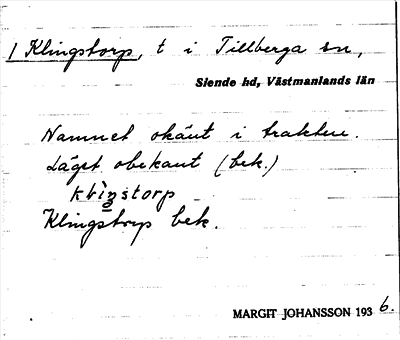 / Klingstorp, t i Tillberga sn,
Siende hd, Västmanlands län
Namnet okänt i trakten.
Läget obekant (bek.)
Klingstorp bek.
MARGIT JOHANSSON 1936.